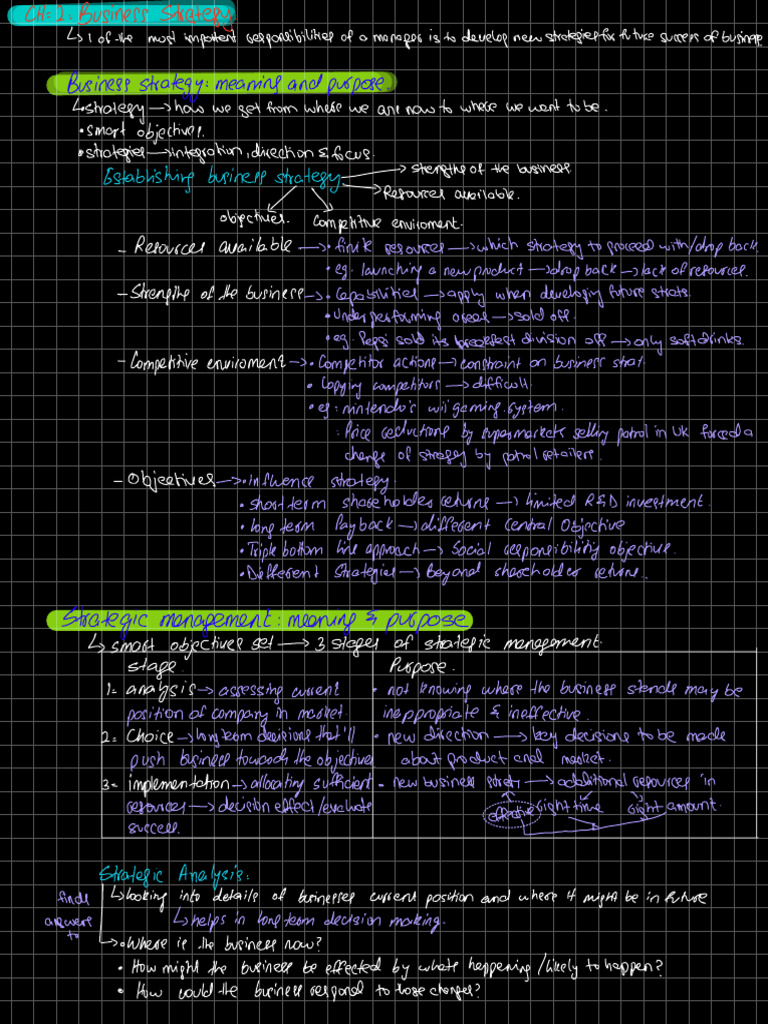 CH: 2: Business Strategy
↳ 1 of the most important responsibilities of a manager is to develop new strategies for future success of business.
Business strategy: meaning and purpose.
↳•strategy → how we get from where we are now to where we want to be.
•smart objectives.
•strategies → integration, direction & focus.
Establishing business strategy
→ strengths of the business
→ Resources available.
objectives. Competitive enviroment.
- Resources available → • finite resources → which strategy to proceed with/drop back.
• eg. launching a new product → drop back → lack of resources.
- Strengths of the business → • Capabilities → apply when developing future strats.
• Under performing areas → sold off.
• eg. Pepsi sold its breakfast division off → only soft drinks.
- Competitive enviroment → • Competitor actions → constraint on business strat.
• Copying competitors → difficult.
• eg: nintendo's wii gaming system.
: Price reductions by supermarkets selling patrol in UK forced a
change of stragey by patrol retailers.
- Objectives → • influence strategy.
• short term shareholders returns → limited R&D investment.
• long term Payback → different central objective
• Triple bottom line approach → Social responsibility objective.
• Different Strategies → beyond shareholder returns.
Strategic management: meaning & purpose
↳ smart objectives set → 3 stages of strategic management.
stage. Purpose.
1= analysis → assessing current • not knowing where the business stands may be
position of company in market. inappropriate & ineffective.
2= Choice → long term decisions that'll • new direction → key decisions to be made
push business towards the objectives about product and market.
3= implementation → allocating sufficient - new business strat → additional resources in
resources → decision effect/evaluate effective right time right amount.
success.
Strategic Analysis:
↳ looking into details of businesses current position and where it might be in future
↳ helps in long term decision making.
finds
answers
to
→ • Where is the business now?
• How might the business be effected by whats happening/likely to happen?
• How could the business respond to those changes?